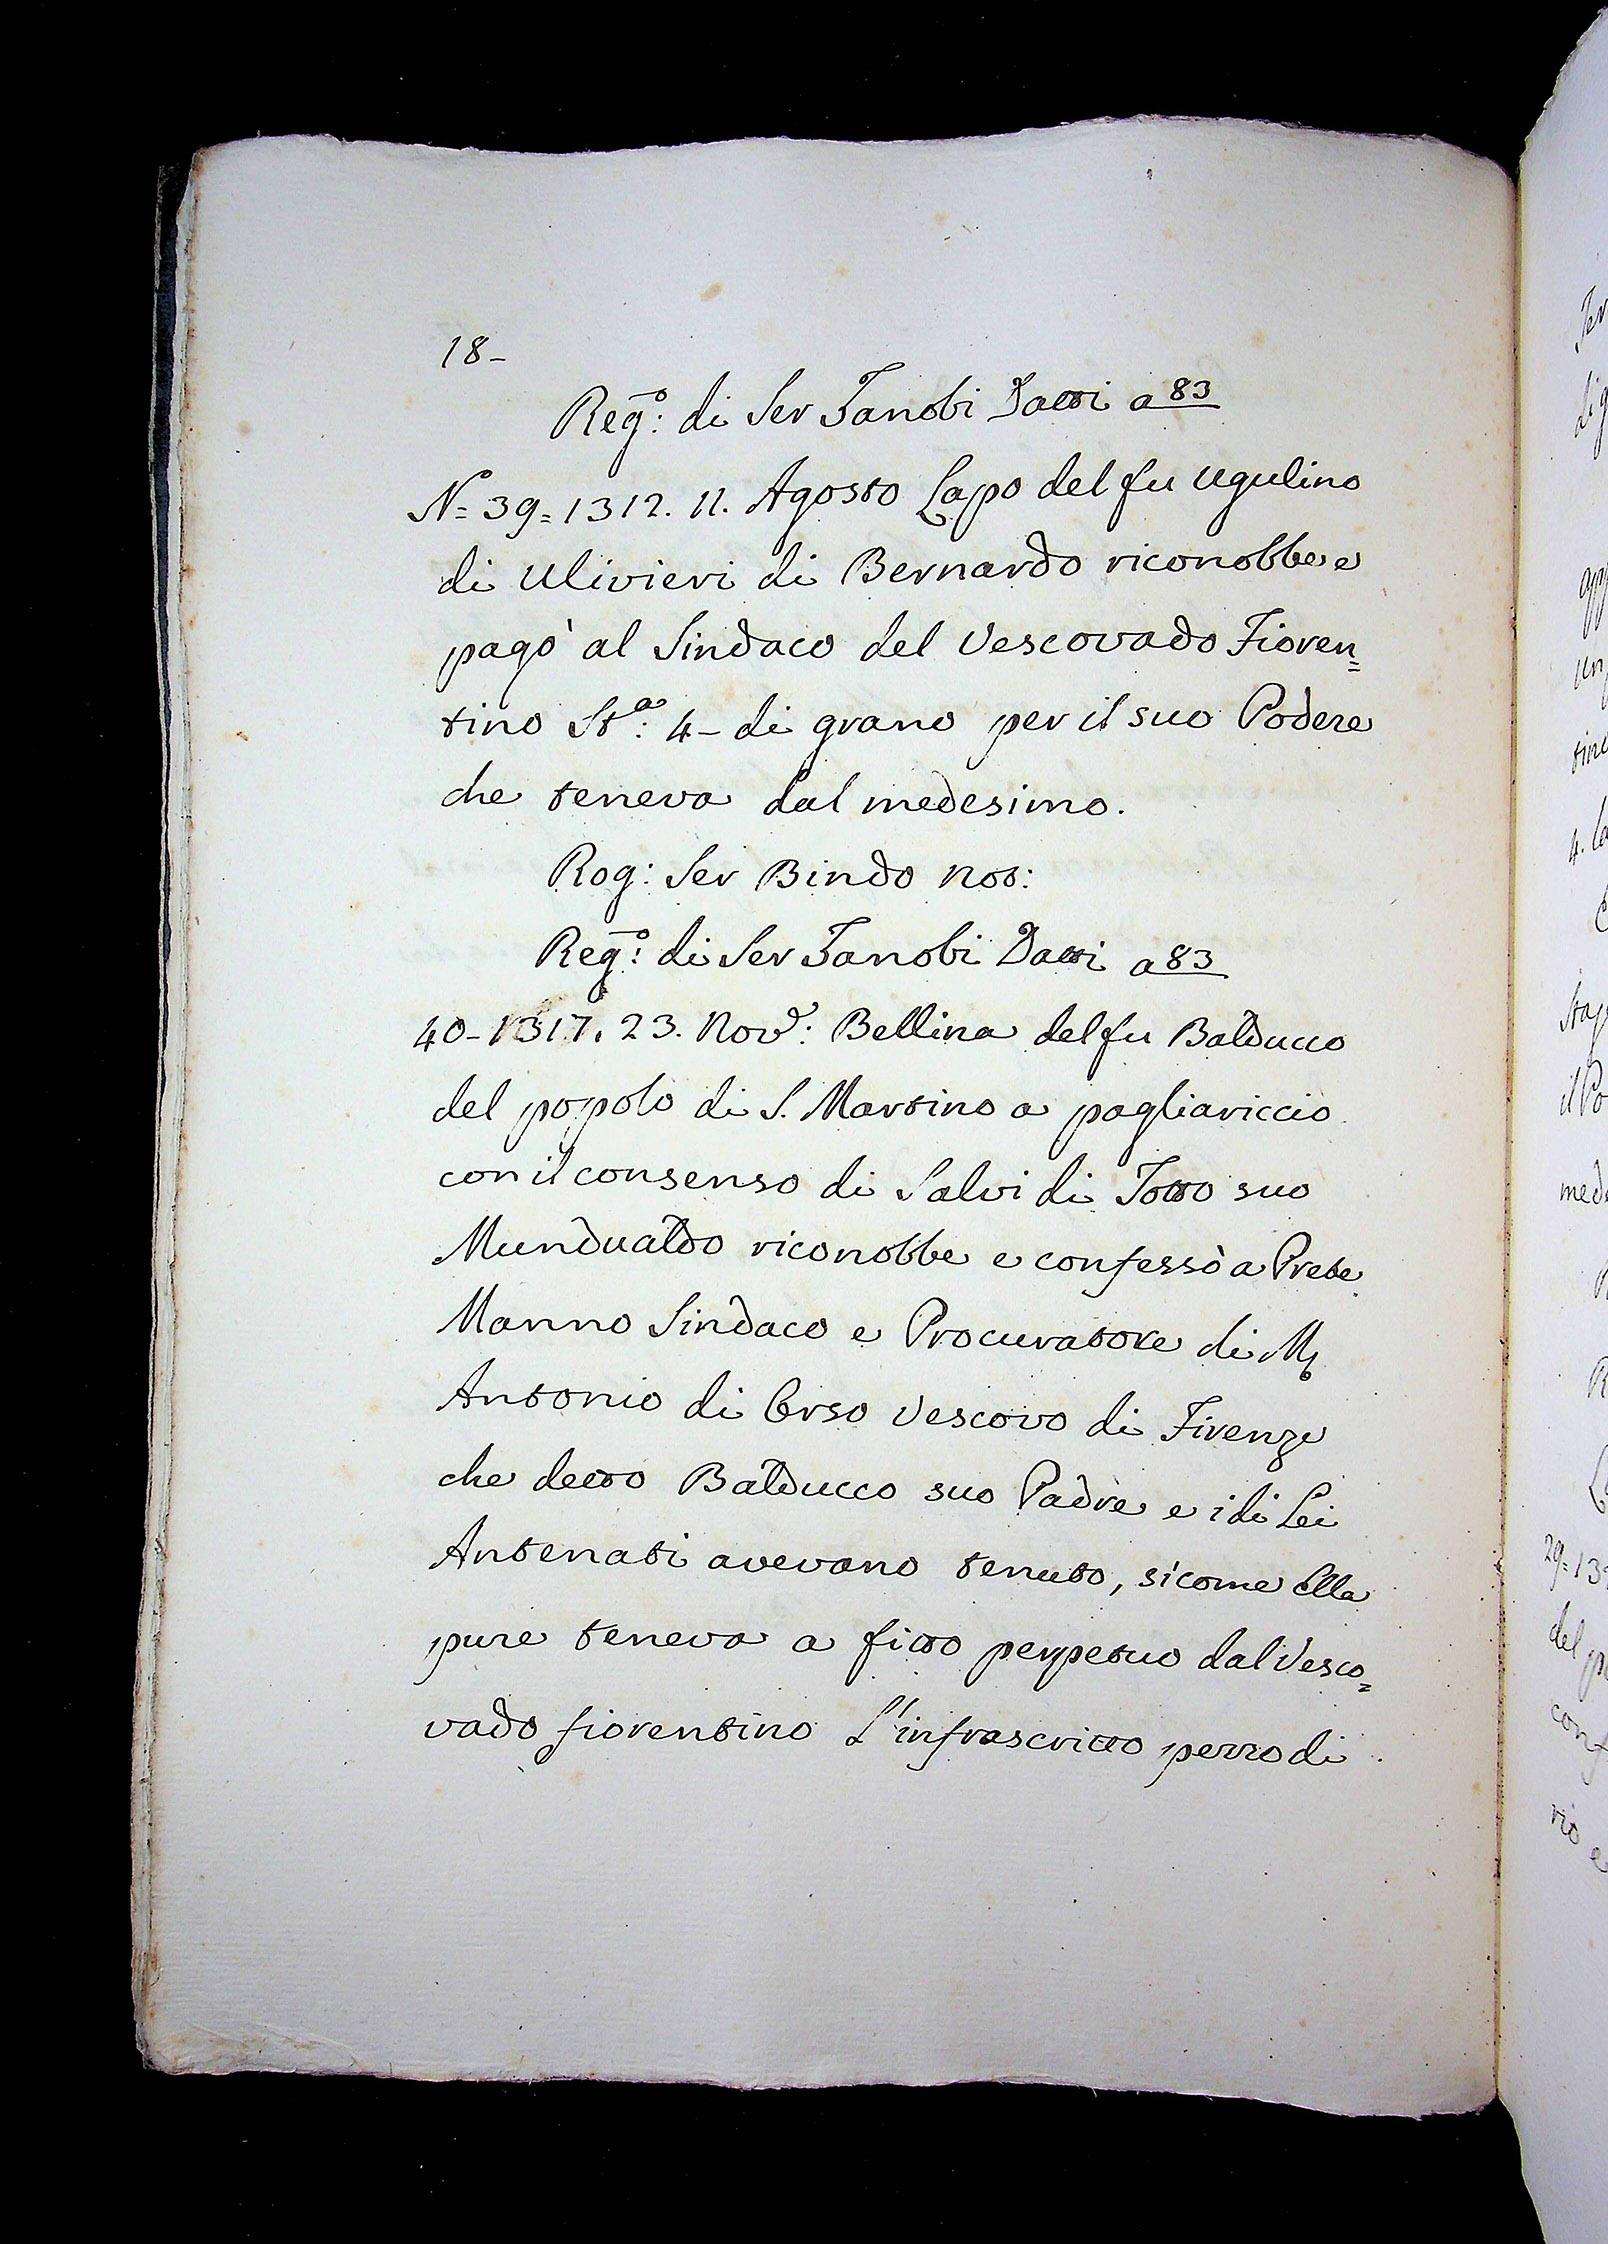 18-
Reg:º di Ser Zanobi Datti a 83
N= 39=1312. 11. Agosto Lapo del fu Ugulino
di Ulivieri di Bernardo riconobbe e
pagò al Sindaco del Vescovado Fioren=
tino Stª: 4- di grano per il suo Podere
che teneva dal medesimo.
Rog: Ser Bindo not:
Reg:º di Ser Zanobi Datti a 83
40-1317. 23. Nov:e Bellina del fu Balducco
del popolo di S. Martino a pagliariccio
con il consenso di Salvi di Totto suo
Mundualdo riconobbe e confessò a Prete
Manno Sindaco e Procuratore di M
Antonio di Orso Vescovo di Firenze
che detto Balducco suo Padre e i di Lei
Antenati avevano tenuto, sicome Ella
pure teneva a fitto perpetuo dal Vesco=
vado fiorentino L'infrascritto pezzo di